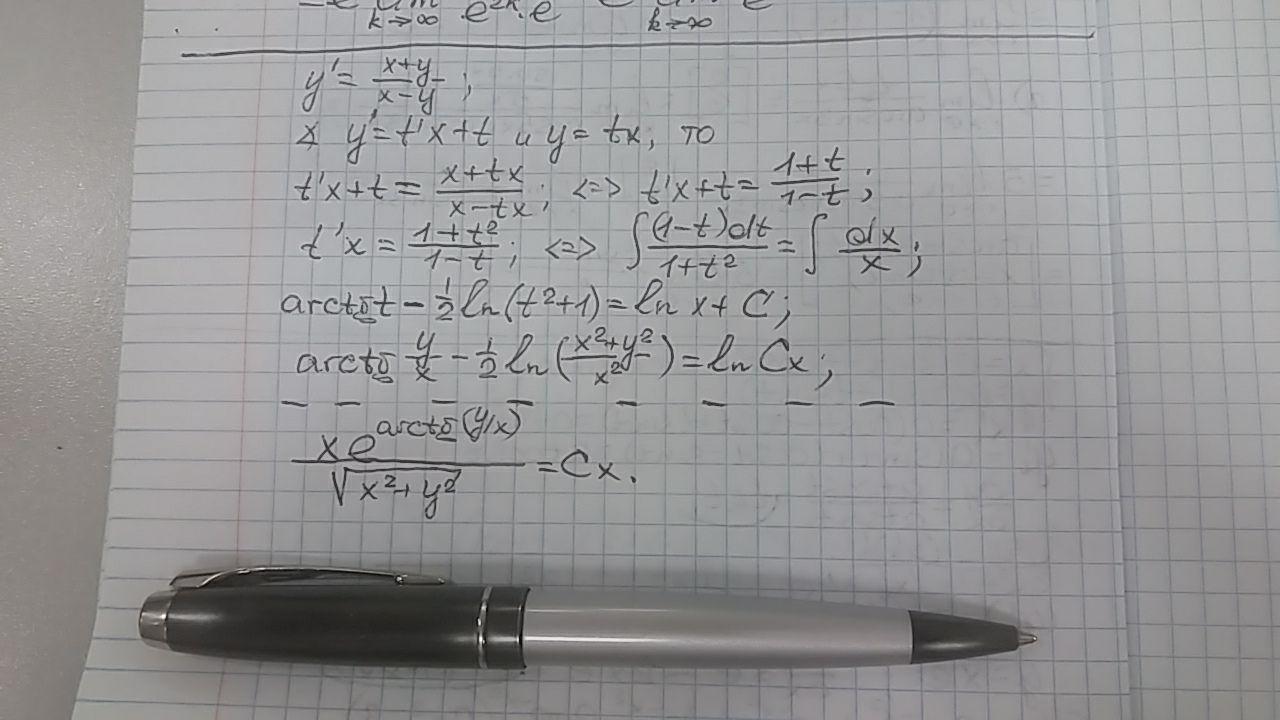 k→∞ e^{2k}·e k→∞ e
y' = \frac{x+y}{x-y};
∢ y' = t'x+t и y = tx, то
t'x+t = \frac{x+tx}{x-tx}; <=> t'x+t = \frac{1+t}{1-t};
t'x = \frac{1+t²}{1-t}; <=> ∫\frac{(1-t)dt}{1+t²} = ∫\frac{dx}{x};
arctg t - \frac{1}{2} ln(t²+1) = ln x + C;
arctg \frac{y}{x} - \frac{1}{2} ln(\frac{x²+y²}{x²}) = ln Cx;
\frac{x e^{arctg(y/x)}}{\sqrt{x²+y²}} = Cx.